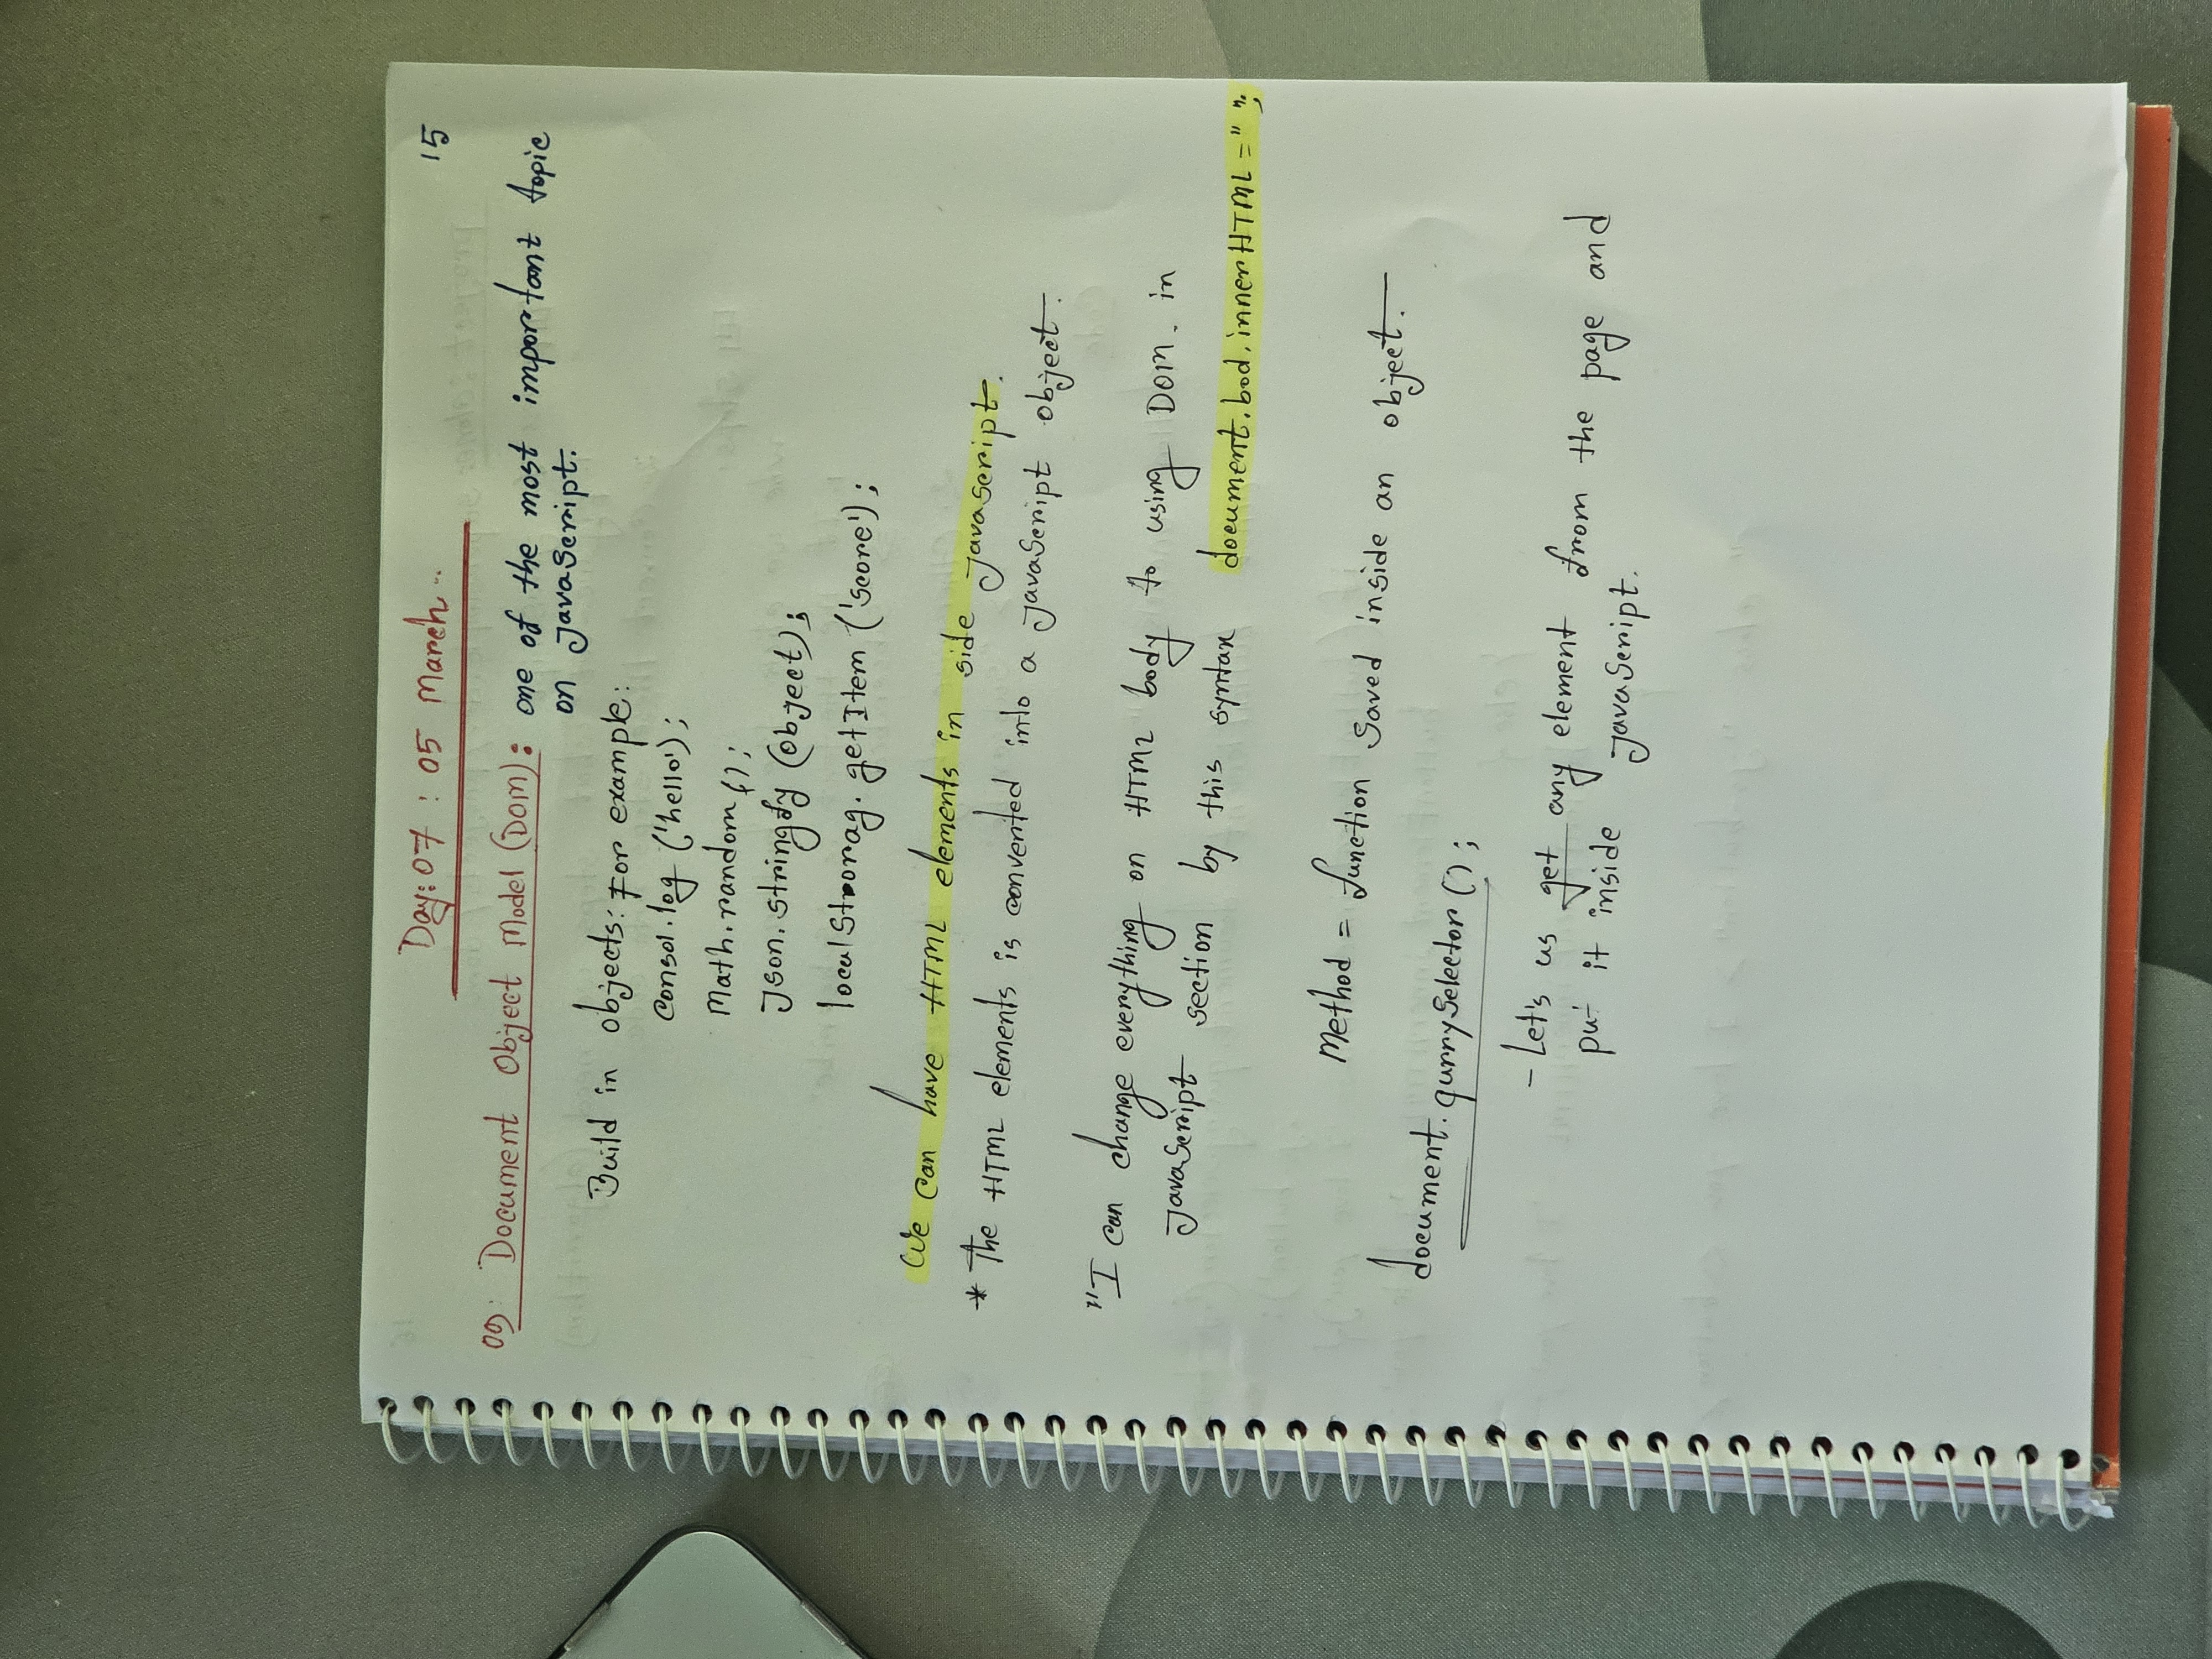 Day: 07 : 05 March..
15
09: Document Object Model (DOM): one of the most important topic
on JavaScript.
Build in objects: For example:
Consol.log ('hello');
Math.random();
Json.stringfy (object);
localStrorag.getItem ('score');
We can have HTML elements in side JavaScript.
* The HTML elements is convented into a JavaScript object.
"I can change everything on HTML body to using DOM. in
JavaScript section by this syntax document.bod.innerHTML = " ";
Method = function saved inside an object.
document.qurrySelector();
- Let's us get any element from the page and
put it inside JavaScript.